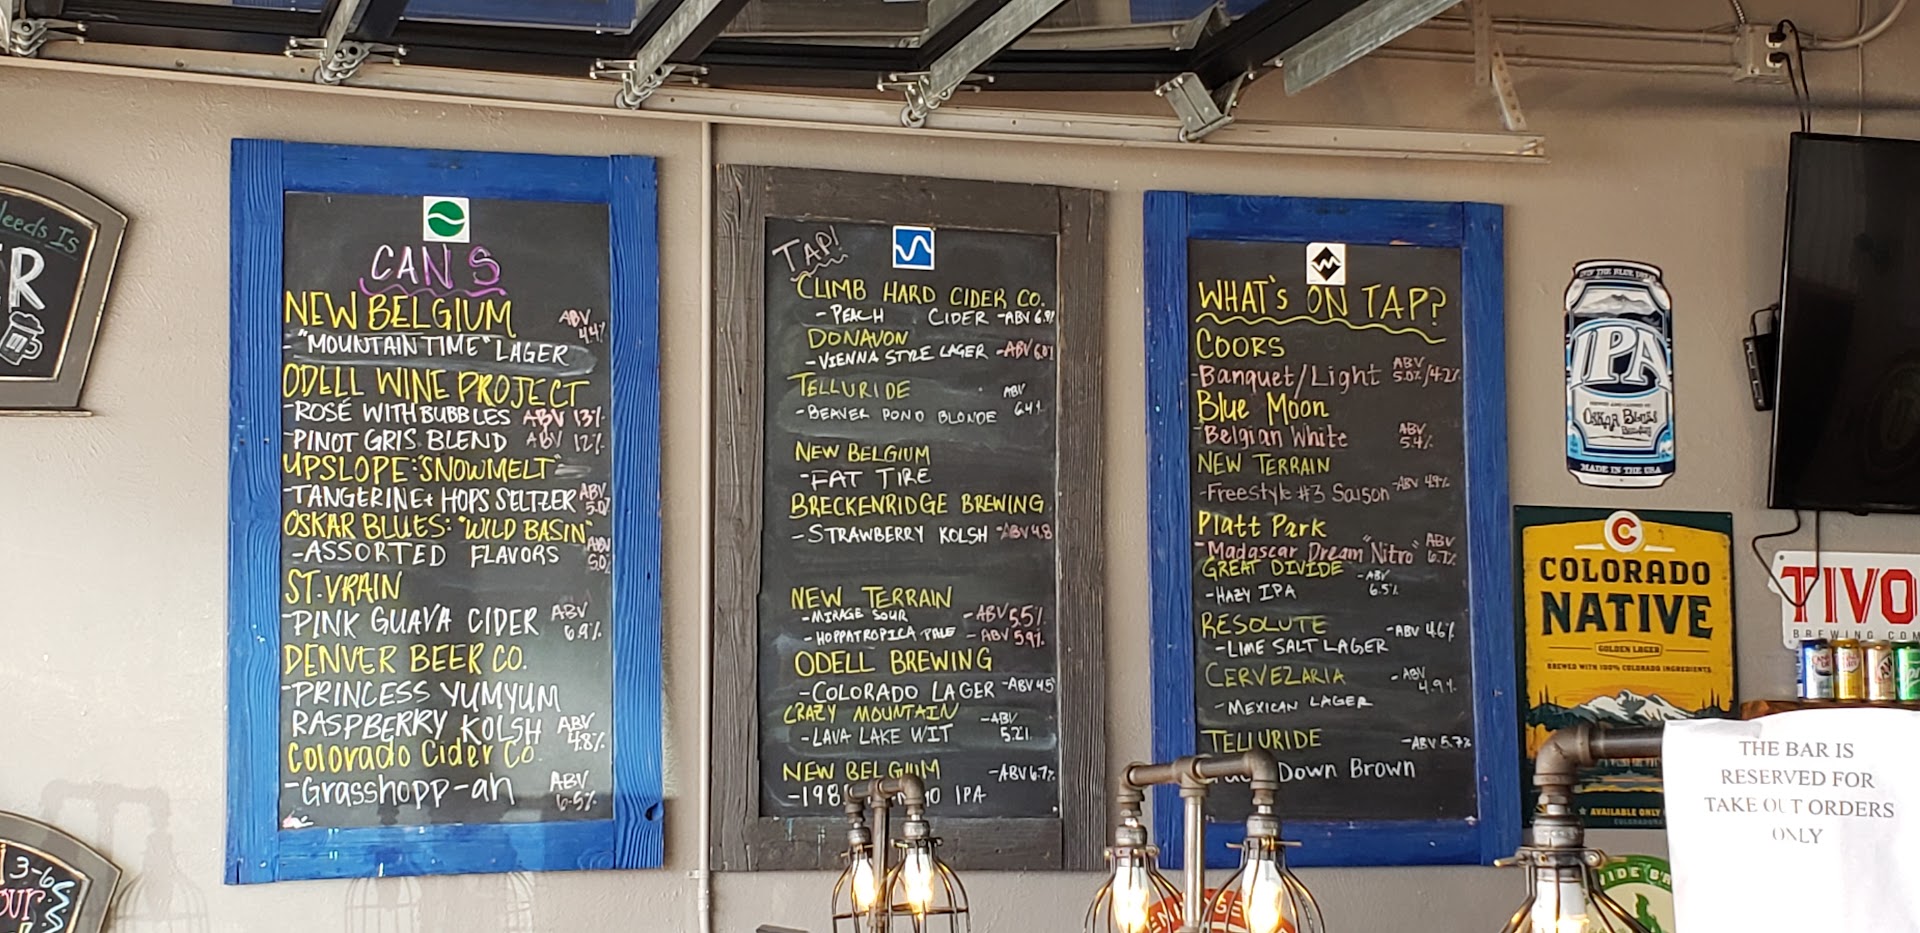 Needs Is
ER
3-6
CAN S
NEW BELGIUM
ABV 4.4%
- "MOUNTAIN TIME" LAGER
ODELL WINE PROJECT
-ROSÉ WITH BUBBLES ABV 13%
-PINOT GRIS BLEND ABV 12%
UPSLOPE: "SNOWMELT"
-TANGERINE + HOPS SELTZER ABV 5.0%
OSKAR BLUES: "WILD BASIN"
-ASSORTED FLAVORS ABV 5.0%
ST. VRAIN
-PINK GUAVA CIDER ABV 6.9%
DENVER BEER CO.
-PRINCESS YUMYUM
RASPBERRY KOLSH ABV 4.8%
Colorado Cider Co.
-Grasshopp-ah ABV 6.5%
TAP!
CLIMB HARD CIDER CO.
- PEACH CIDER -ABV 6.9%
DONAVON
-VIENNA STYLE LAGER -ABV
TELLURIDE
-BEAVER POND BLONDE ABV 6.4%
NEW BELGIUM
-FAT TIRE
BRECKENRIDGE BREWING
- STRAWBERRY KOLSH -ABV 4.8
NEW TERRAIN
-MIRAGE SOUR -ABV 5.5%
- HOPPATROPICA PALE - ABV 5.9%
ODELL BREWING
-COLORADO LAGER -ABV 4.5
CRAZY MOUNTAIN
-LAVA LAKE WIT -ABV 5.2%
NEW BELGIUM -ABV 6.7%
IPA
WHAT'S ON TAP?
COORS
-Banquet/Light ABV 5.0%/4.2%
Blue Moon
-Belgian White ABV 5.4%
NEW TERRAIN
-Freestyle #3 Saison -ABV 4.9%
Platt Park
-Madagscar Dream "Nitro" ABV 6.7%
GREAT DIVIDE
-HAZY IPA -ABV 6.5%
RESOLUTE -ABV 4.6%
- LIME SALT LAGER
CERVEZARIA -ABV 4.9%
- MEXICAN LAGER
TELLURIDE -ABV 5.7%
Down Brown
IPA
OSKAR BLUES
MADE IN THE USA
C
COLORADO
NATIVE
GOLDEN LAGER
BREWED WITH 100% COLORADO INGREDIENTS
AVAILABLE ONLY
TIVO
BREWING COM
THE BAR IS
RESERVED FOR
TAKE OUT ORDERS
ONLY